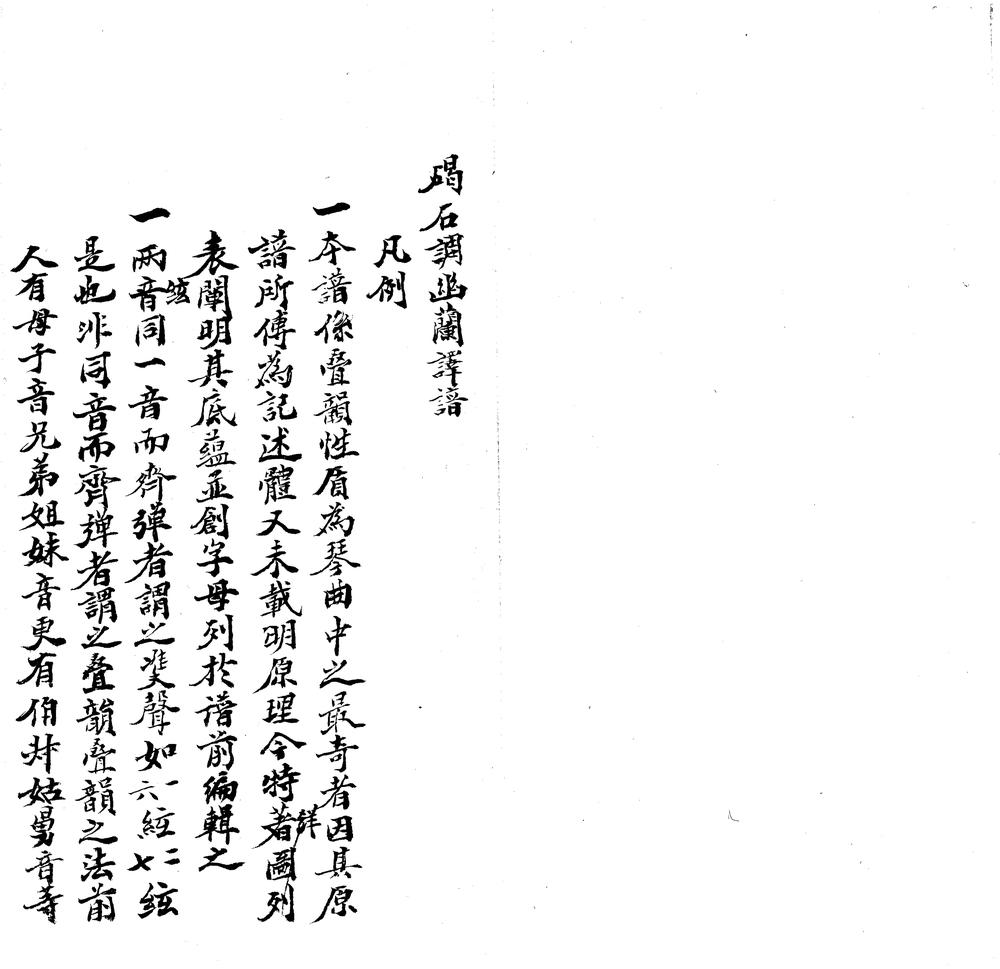 碣石調幽蘭譯譜
凡例
一本譜係疊韻性質為琴曲中之最奇者因其原
譜所傳為記述體又未載明原理今特著詳圖列
表闡明其底蘊並創字母列於譜前編輯之
一兩絃音同一音而齊弹者謂之雙聲如一六絃二七絃
是也非同音而齊弹者謂之疊韻疊韻之法前
人有母子音兄弟姐妹音更有伯叔姑舅音等